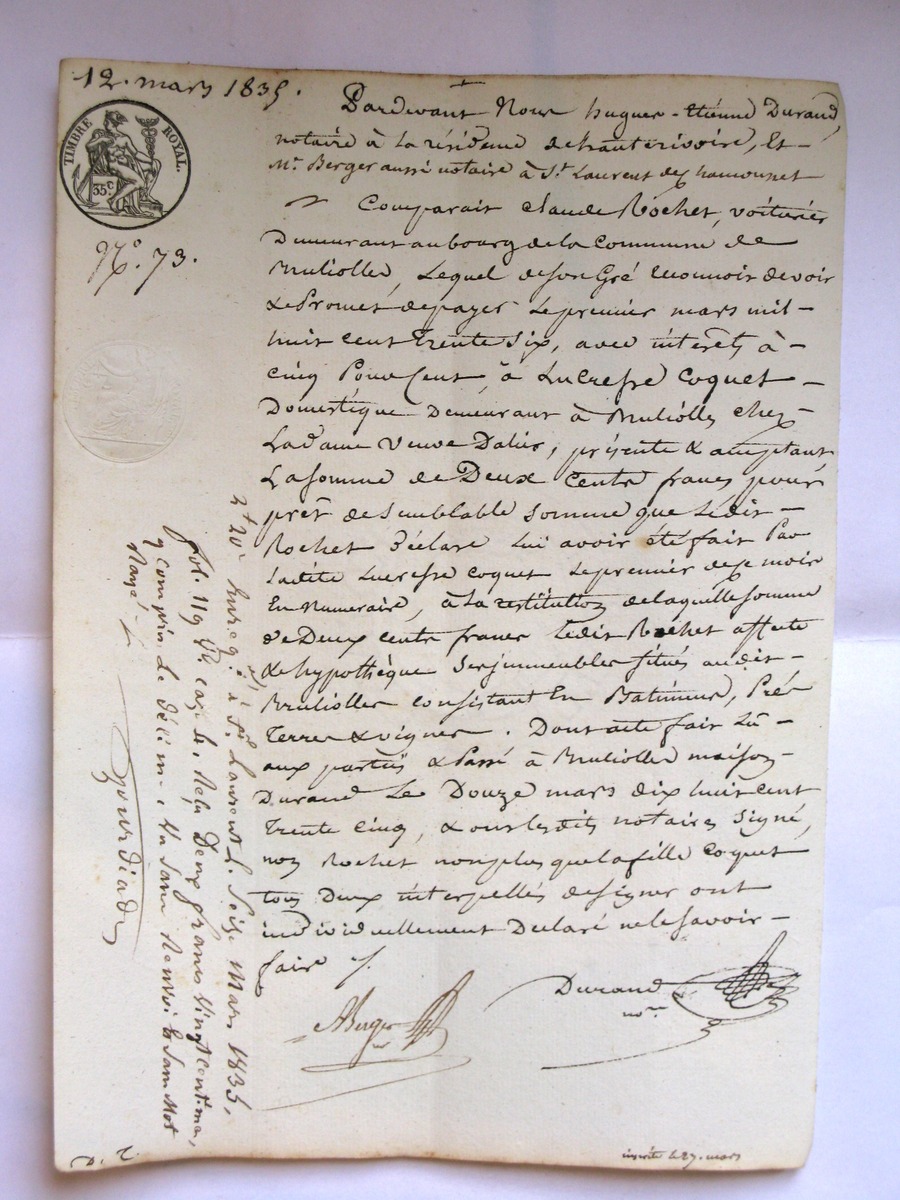 12. mars 1835.
TIMBRE ROYAL.
35c
No. 73.
Pardevant Nous hugues-Etiénne Durand
notaire à la résidence de hauterivoire, Et
Mr. Berger aussi notaire à St. Laurent de chamousset
Comparait Claude Rochet, voiturier
Demeurant au bourg de la Commune de
Brulliolles, Lequel de son Gré reconnoit devoir
& Promet de payer Le premier mars mil
huit cent Trente Six, avec intérêts à
Cinq Pour Cent, à Lucresse Coquet
Domestique Demeurant à Brulliolles chez
La dame Veuve Daliés, présente & acceptant
La somme de Deux Cents francs pour
prêt de Semblable Somme que Ledit
Rochet Déclare Lui avoir été fait Par
Ladite Lucresse Coquet Le premier de ce mois
En Numeraire, à La restitution de laquelle somme
de Deux cents francs Ledit Rochet affecte
& hypothèque Ses immeubles situés audit
Brulliolles Consistant En Batiments, Prés
Terres & vignes. Dont acte fait Lu
aux parties & Passé à Brulliolles maison
Durand Le Douze mars dix huit cent
Trente Cinq, & ont lesdits notaires Signé,
non Rochet non plus que la fille Coquet
tous Deux interpellés de signer ont
individuellement Déclaré ne le savoir
faire
ABerger
Durand
nore
Enregé. à St. Laurent Le Seize Mars 1835,
fol. 119 Vo. cas. Reçu Deux francs Vingt centimes,
y compris Le décime Sans Renvoi & Sans Mot
Rayé
Gourdiade
D. T.
inscrite le 27. mars